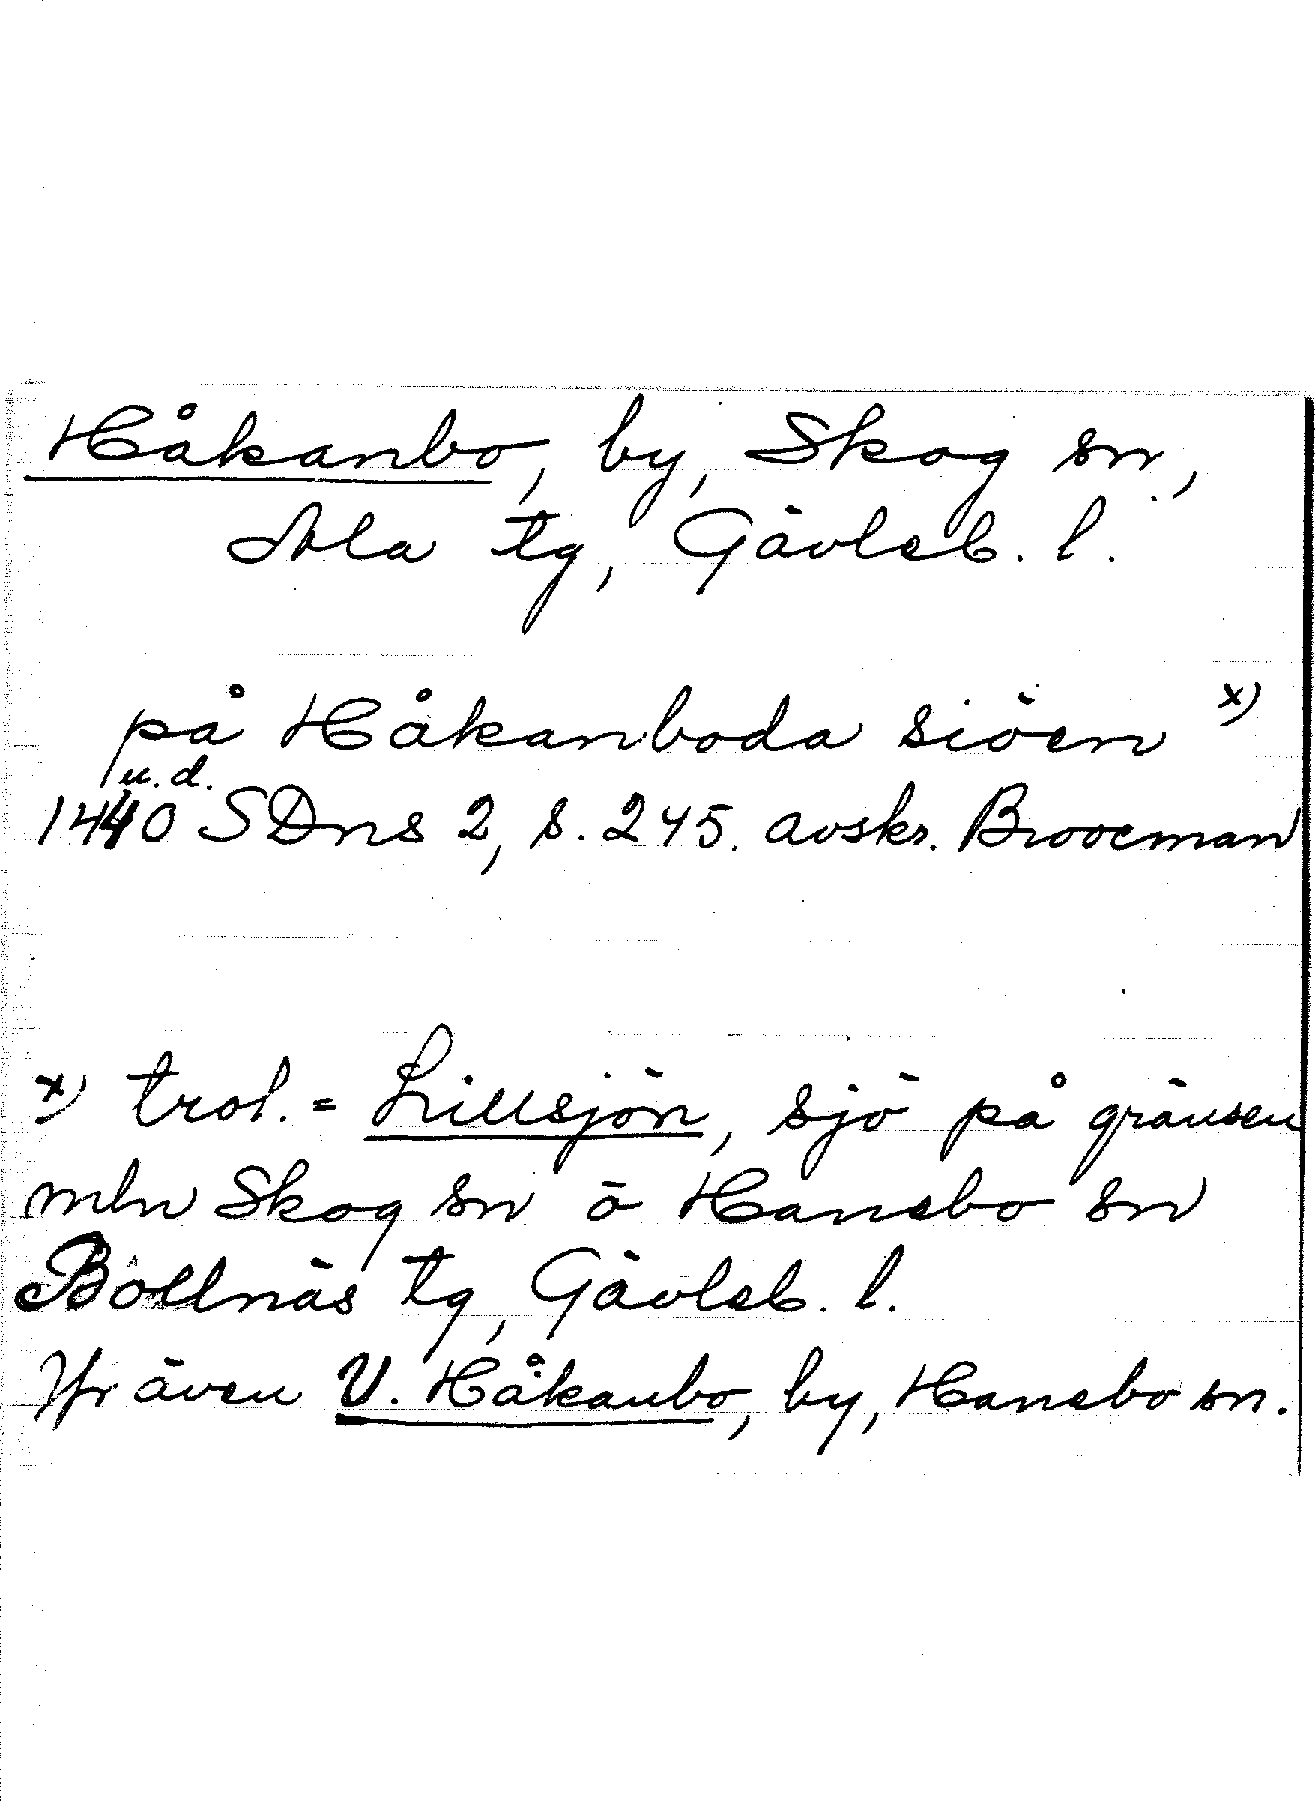 Håkanbo, by, Skog sn,
Ala tg, Gävleb. l.
på Håkanboda siöen x)
u.d.
1440 SDns 2, s. 245. avskr. Broocman
x) trol. = Lillsjön, sjö på gränsen
mln Skog sn o Hanebo sn
Bollnäs tg, Gävleb. l.
Jfr även V. Håkanbo, by, Hanebo sn.